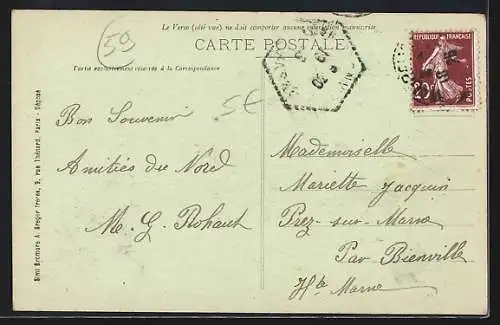 Le Verso (côté vue) ne doit comporter aucune annotation manuscrite
CARTE POSTALE
59
Partie exclusivement réservée à la Correspondance
5€
20c
POSTES
Bon Souvenir
Amitiés du Nord
M. G. Rohaut
Mademoiselle
Mariette Jacquin
Prez-sur-Marne
Par Bienville
Hte Marne
Simi Bromure A. Breger frères, 9, rue Thénard, Paris - Déposé